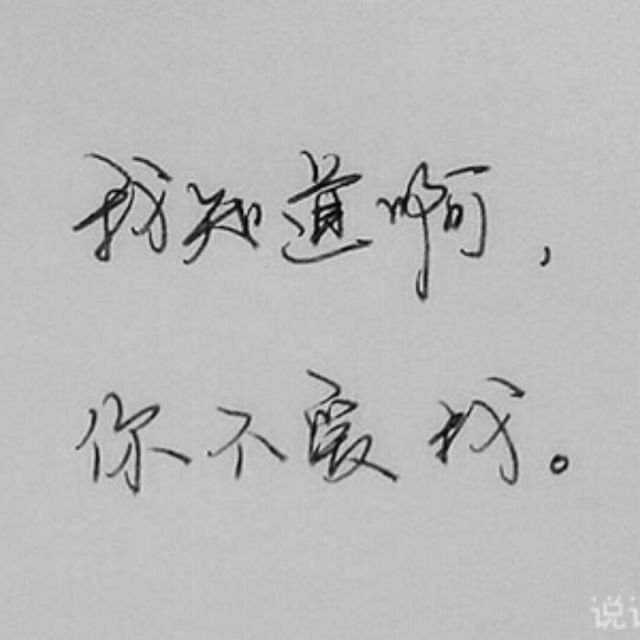 我知道啊，
你不爱我。
说